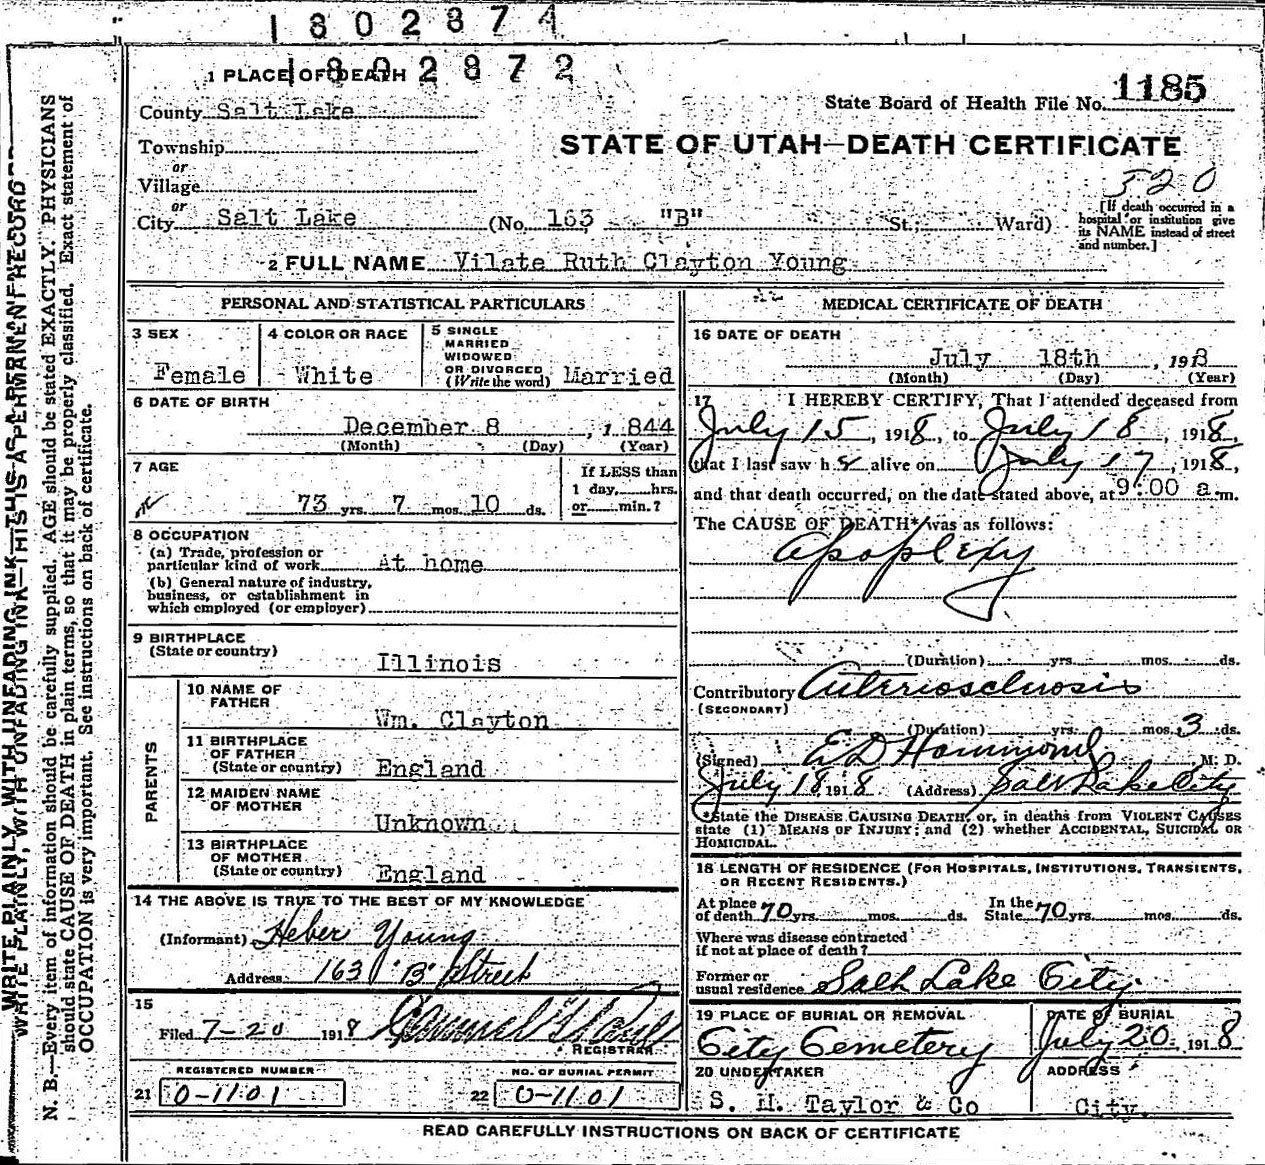 1802874
1802872
1 PLACE OF DEATH
County Salt Lake
State Board of Health File No. 1185
Township
STATE OF UTAH—DEATH CERTIFICATE
or
Village
520
or
City Salt Lake (No. 163 "B" St.; Ward)
[If death occurred in a
hospital or institution give
its NAME instead of street
and number.]
2 FULL NAME Vilate Ruth Clayton Young
PERSONAL AND STATISTICAL PARTICULARS
3 SEX
Female
4 COLOR OR RACE
White
5 SINGLE
MARRIED
WIDOWED
OR DIVORCED
(Write the word) Married
6 DATE OF BIRTH
December 8, 1844
(Month) (Day) (Year)
7 AGE
73 yrs. 7 mos. 10 ds.
If LESS than
1 day, hrs.
or min.?
8 OCCUPATION
(a) Trade, profession or
particular kind of work At home
(b) General nature of industry,
business, or establishment in
which employed (or employer)
9 BIRTHPLACE
(State or country)
Illinois
PARENTS
10 NAME OF
FATHER
Wm. Clayton
11 BIRTHPLACE
OF FATHER
(State or country) England
12 MAIDEN NAME
OF MOTHER
Unknown
13 BIRTHPLACE
OF MOTHER
(State or country) England
14 THE ABOVE IS TRUE TO THE BEST OF MY KNOWLEDGE
(Informant) Heber Young
Address 163 "B" Street
15
Filed 7-20 1918
REGISTRAR
REGISTERED NUMBER
21 0-1101
NO. OF BURIAL PERMIT
22 0-1101
MEDICAL CERTIFICATE OF DEATH
16 DATE OF DEATH
July 18th, 1918
(Month) (Day) (Year)
17 I HEREBY CERTIFY, That I attended deceased from
July 15, 1918, to July 18, 1918,
that I last saw her alive on July 17, 1918,
and that death occurred, on the date stated above, at 9:00 a.m.
The CAUSE OF DEATH* was as follows:
Apoplexy
(Duration) yrs. mos. ds.
Contributory Arteriosclerosis
(SECONDARY)
(Duration) yrs. mos. 3 ds.
(Signed) E D Hammond M. D.
July 18 1918 (Address) Salt Lake City
*State the DISEASE CAUSING DEATH, or, in deaths from VIOLENT CAUSES
state (1) MEANS OF INJURY; and (2) whether ACCIDENTAL, SUICIDAL OR
HOMICIDAL.
18 LENGTH OF RESIDENCE (FOR HOSPITALS, INSTITUTIONS, TRANSIENTS,
OR RECENT RESIDENTS.)
At place
of death 70 yrs. mos. ds.
In the
State 70 yrs. mos. ds.
Where was disease contracted
if not at place of death?
Former or
usual residence Salt Lake City
19 PLACE OF BURIAL OR REMOVAL
City Cemetery
DATE OF BURIAL
July 20, 1918
20 UNDERTAKER
S. M. Taylor & Co
ADDRESS
City.
READ CAREFULLY INSTRUCTIONS ON BACK OF CERTIFICATE
WRITE PLAINLY, WITH UNFADING INK—THIS IS A PERMANENT RECORD
N. B.—Every item of information should be carefully supplied. AGE should be stated EXACTLY. PHYSICIANS
should state CAUSE OF DEATH in plain terms, so that it may be properly classified. Exact statement of
OCCUPATION is very important. See instructions on back of certificate.